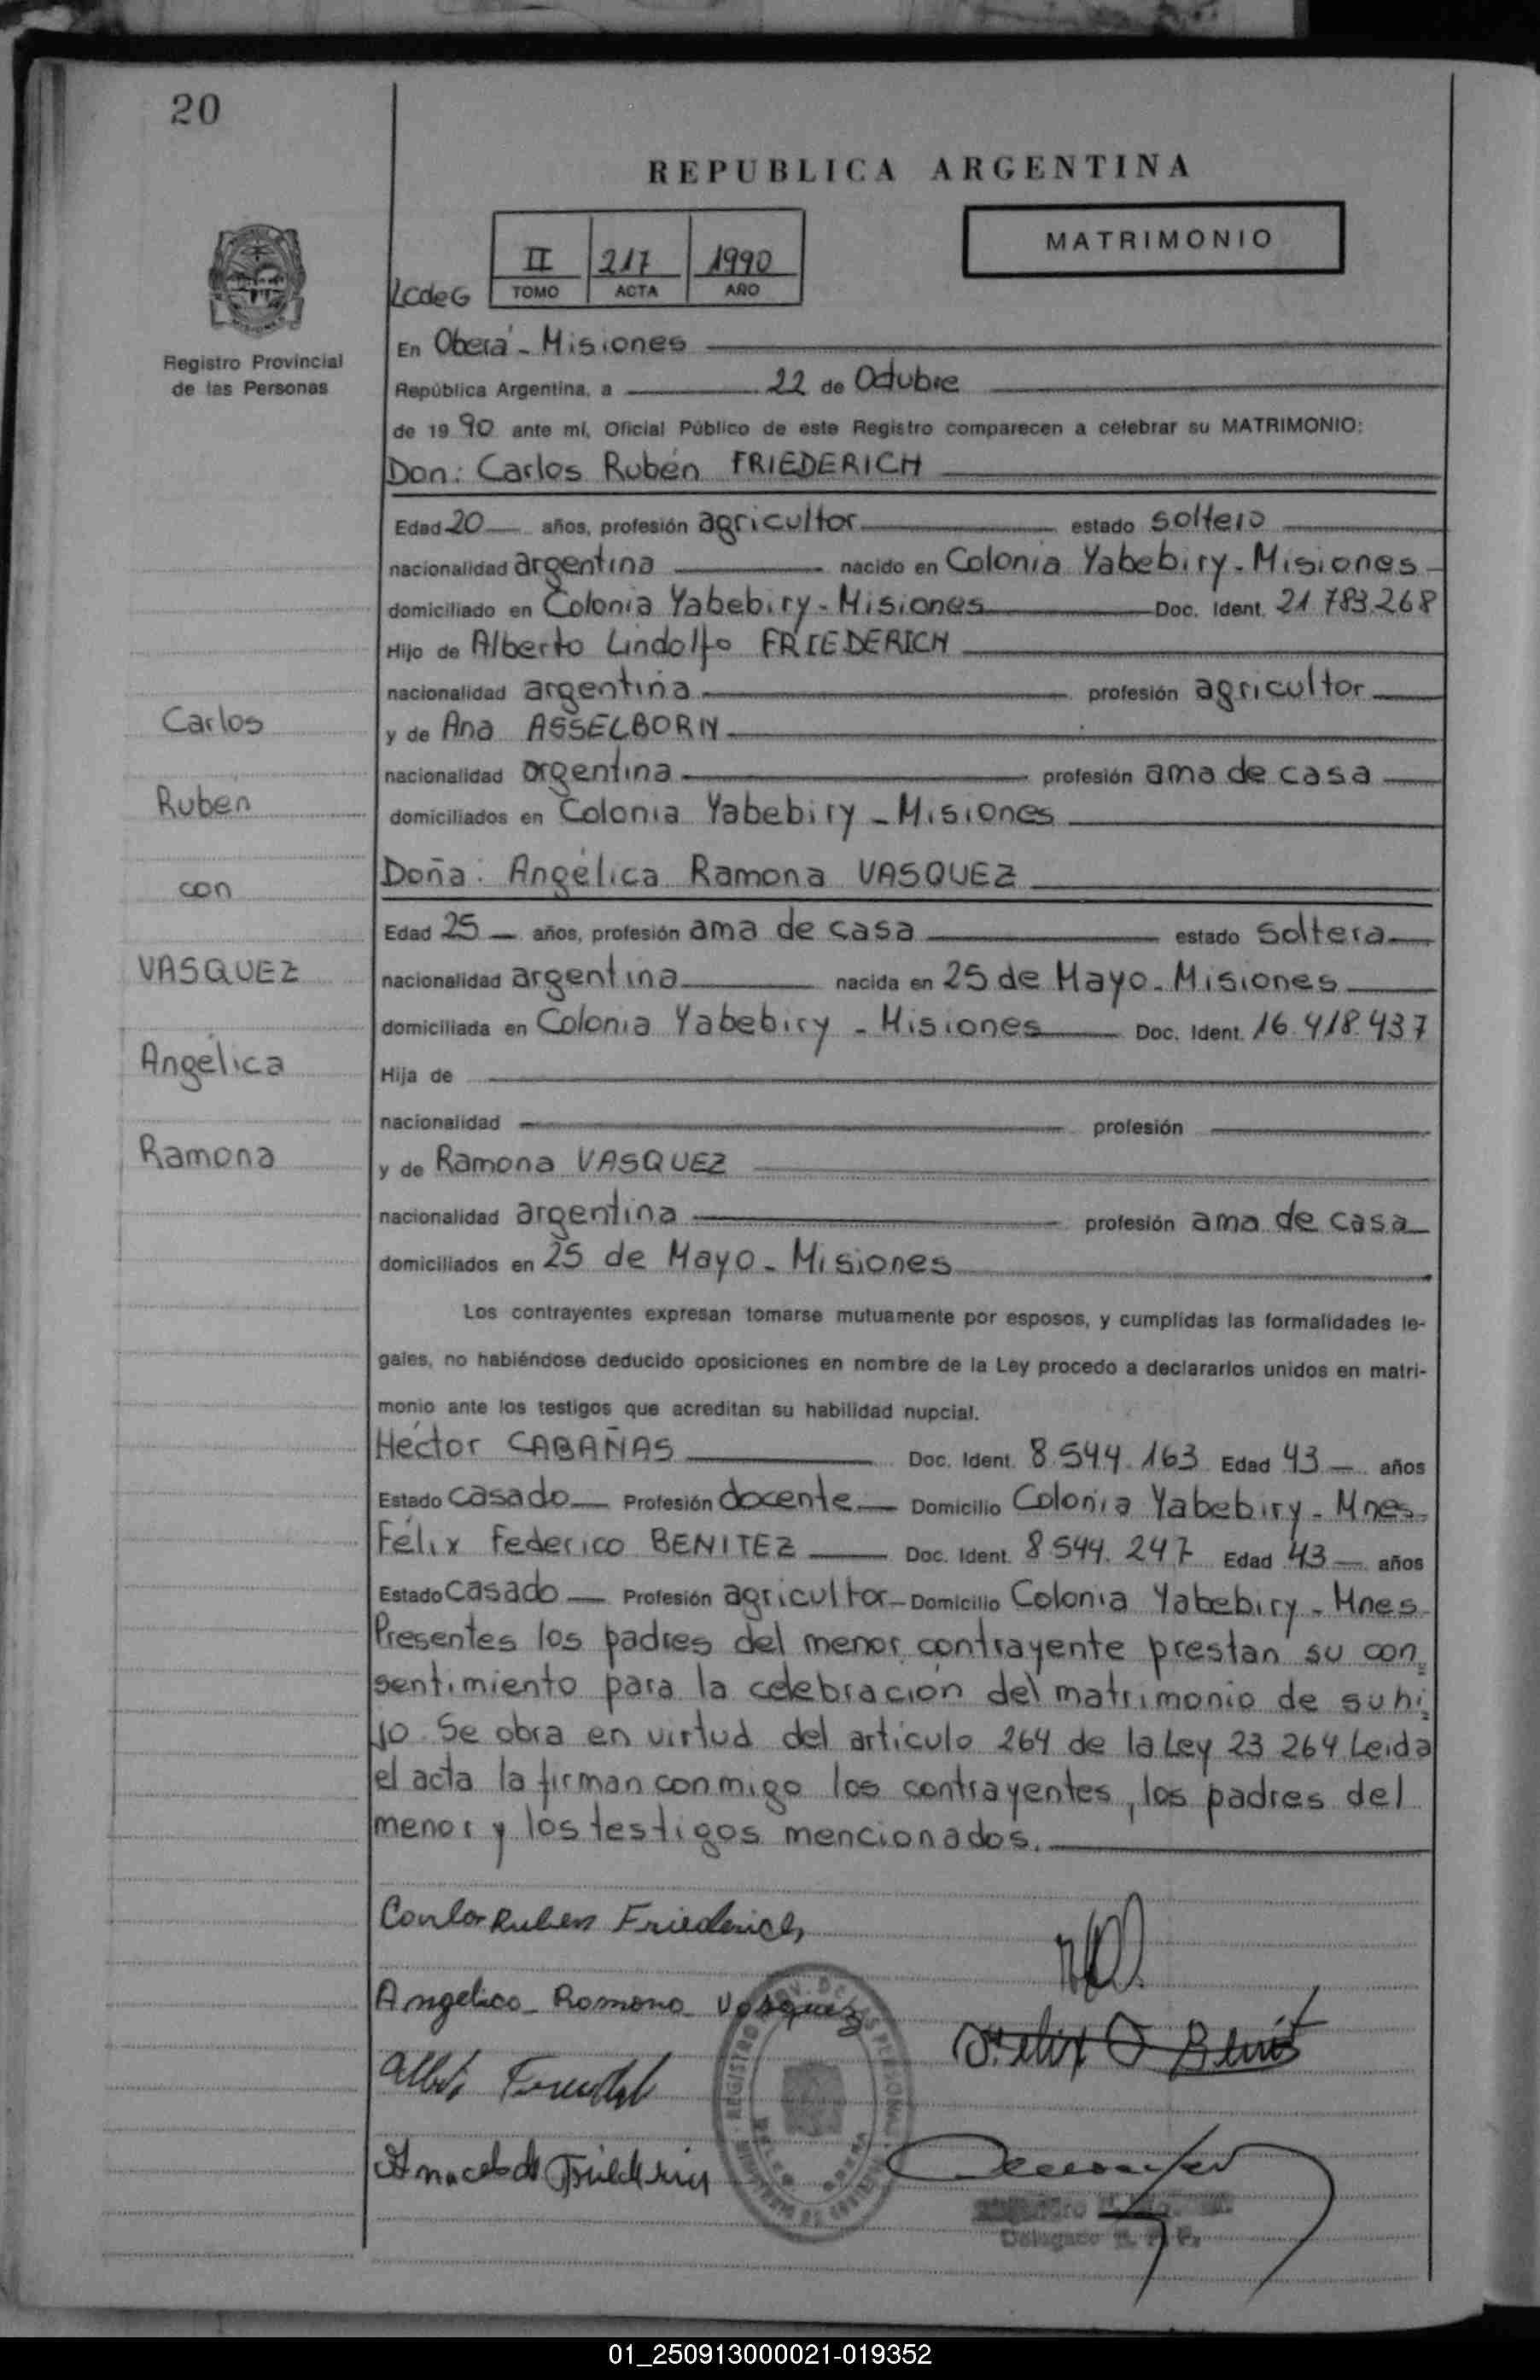 20
REPUBLICA ARGENTINA
MATRIMONIO
II 217 1990
LCdeG TOMO ACTA AÑO
Registro Provincial
de las Personas
En Oberá - Misiones
República Argentina, a 22 de Octubre
de 1990 ante mí, Oficial Público de este Registro comparecen a celebrar su MATRIMONIO:
Don: Carlos Rubén FRIEDERICH
Edad 20 años, profesión agricultor estado soltero
nacionalidad argentina nacido en Colonia Yabebiry - Misiones
domiciliado en Colonia Yabebiry - Misiones Doc. Ident. 21.783.268
Hijo de Alberto Lindolfo FRIEDERICH
nacionalidad argentina profesión agricultor
Carlos
y de Ana ASSELBORN
nacionalidad argentina profesión ama de casa
Rubén
domiciliados en Colonia Yabebiry - Misiones
con
Doña: Angélica Ramona VASQUEZ
Edad 25 años, profesión ama de casa estado soltera
VASQUEZ
nacionalidad argentina nacida en 25 de Mayo - Misiones
domiciliada en Colonia Yabebiry - Misiones Doc. Ident. 16.418.437
Angélica
Hija de
nacionalidad profesión
Ramona
y de Ramona VASQUEZ
nacionalidad argentina profesión ama de casa
domiciliados en 25 de Mayo - Misiones
Los contrayentes expresan tomarse mutuamente por esposos, y cumplidas las formalidades le-
gales, no habiéndose deducido oposiciones en nombre de la Ley procedo a declararlos unidos en matri-
monio ante los testigos que acreditan su habilidad nupcial.
Héctor CABAÑAS Doc. Ident. 8.544.163 Edad 43 años
Estado casado Profesión docente Domicilio Colonia Yabebiry - Mnes.
Félix Federico BENITEZ Doc. Ident. 8.544.247 Edad 43 años
Estado casado Profesión agricultor Domicilio Colonia Yabebiry - Mnes
Presentes los padres del menor contrayente prestan su con
sentimiento para la celebración del matrimonio de su hi
jo. Se obra en virtud del articulo 264 de la Ley 23 264 Leida
el acta la firman conmigo los contrayentes, los padres del
menor y los testigos mencionados.
Carlos Ruben Friederich
Angelica Ramona Vasquez
01_250913000021-019352